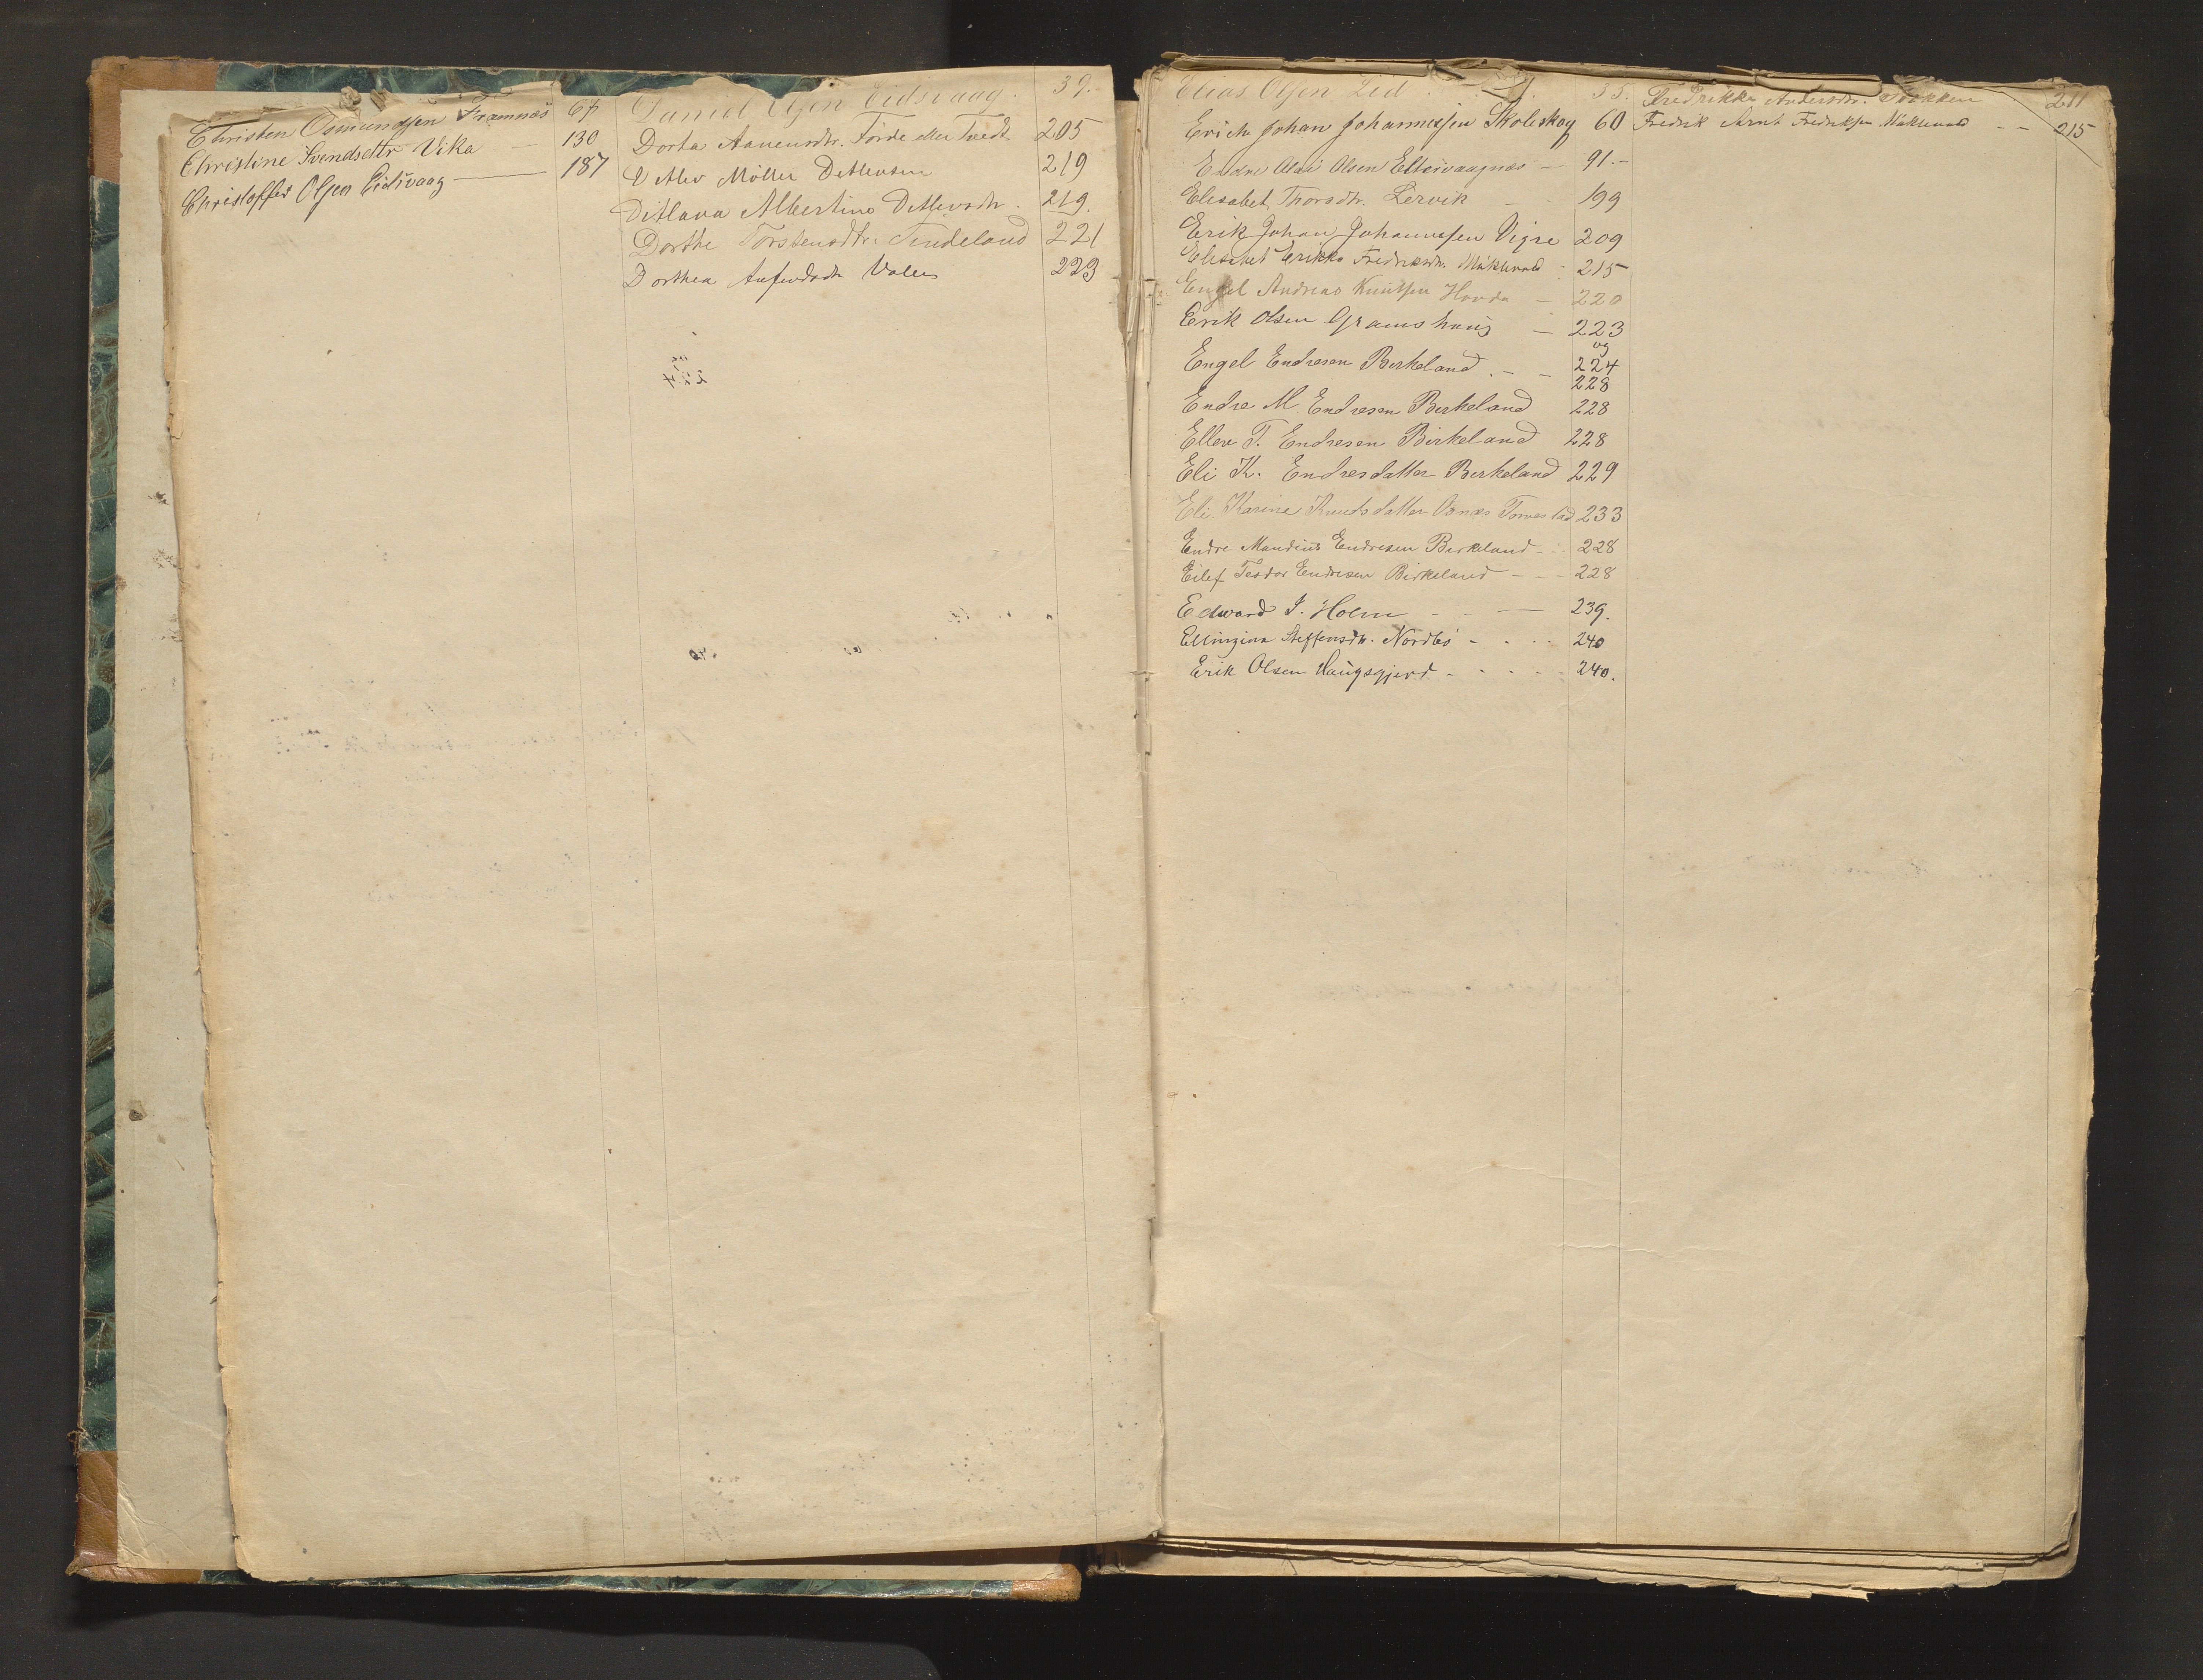 Christen Osmundsen Framnæs 67
Christine Svendsdttr Vika 130
Christoffer Olsen Eidsvaag 187
Daniel Olsen Eidsvaag. 39.-
Dorta Aanensdtr. Førde eller Tvedt 205
Detlev Møller Detlevsen 219
Ditlava Albertine Detlevsdtr. 219.
Dorthe Torstensdtr. Tendeland 221
Dorthea Valen 223
Elias Olsen Lid 35.
Erich Johan Johannessen Skoleskog 60
Endre Olai Olsen Eltervaagnæs - 91.-
Elisabet Thorsdtr. Lervik - 199
Erik Johan Johannessen Vigre 209
Elisabet Erikka Fredriksdtr. Møklevold - 215
Engel Andreas Knutsen Hovda - 220
Erik Olsen Gramshaug - 223
og
Engel Endresen Birkeland. - - 224
228
Endre M. Endresen Birkeland 228
Ellev T. Endresen Birkeland 228
Eli K. Endresdatter Birkeland 229
Eli Karine Knutsdatter Tornes 233
Endre Mandius Endresen Birkeland - 228
Eilef Teodor Endresen Birkeland - - - 228
Edward J. Holm - - - 239.
Ellingine Steffensdtr. Nordbø - - - 240
Erik Olsen Haugsgjerd - - - - - 240.
Fredrikke Andersdtr. Stokken 211
Fredrik Arnt Fredriksen Møklevold - - 215